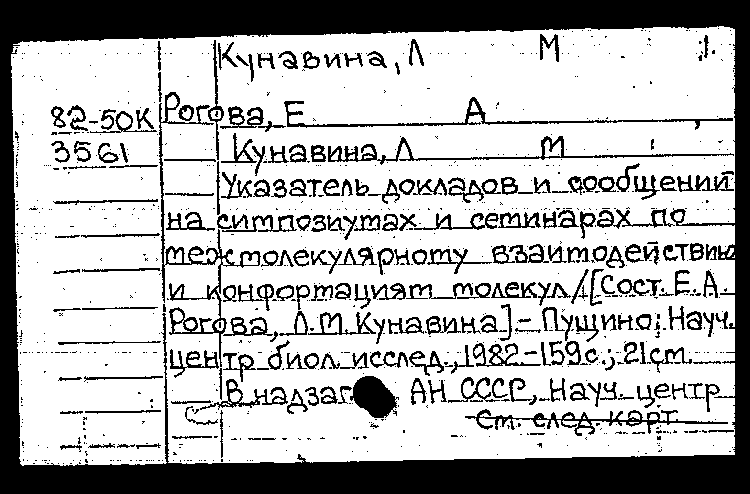 Кунавина, Л М 1.
82-50К Рогова, Е А
3561 Кунавина, Л М
Указатель докладов и сообщений
на симпозиумах и семинарах по
межмолекулярному взаимодействию
и конформациям молекул /[Сост. Е.А.
Рогова, Л.М. Кунавина] - Пущино: Науч.
центр биол. исслед., 1982-159с.; 21см.
В надзаг. АН СССР, Науч. центр
См. след. карт